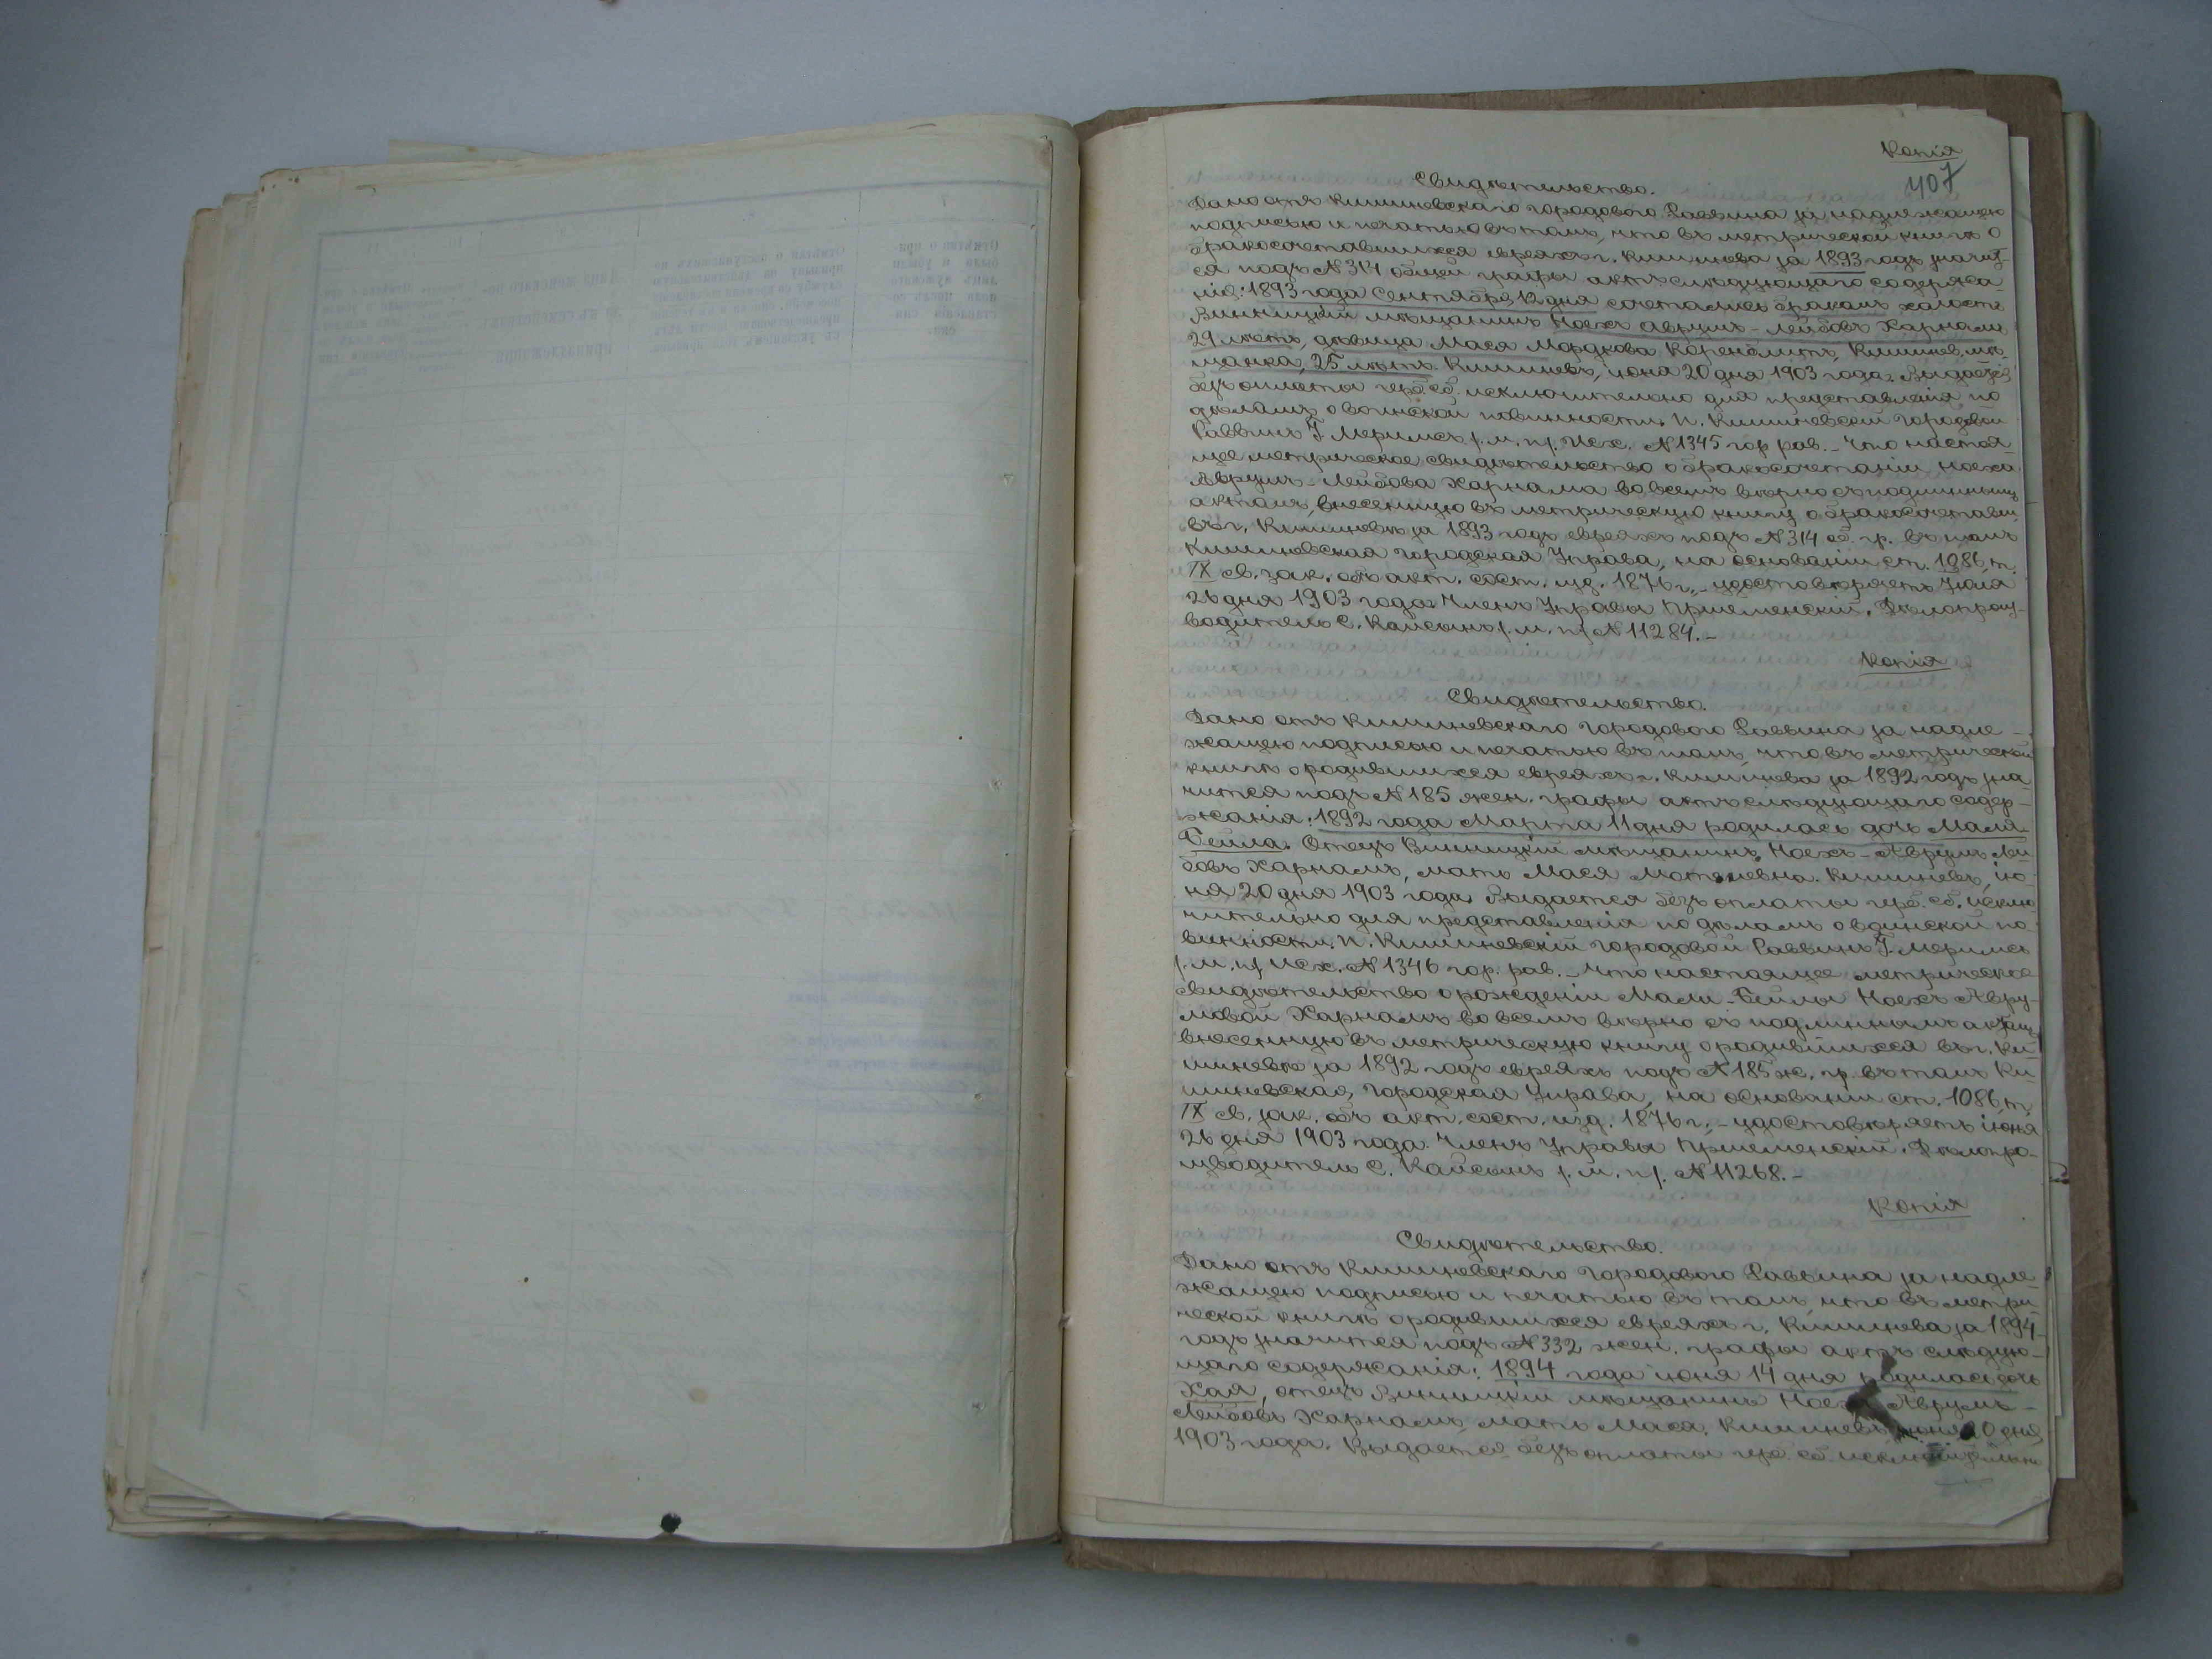 Копія
407
Свидѣтельство.
Дано отъ Кишиневскаго городового Раввина за надлежащею
подписью и печатью въ томъ, что въ метрической книгѣ о
бракосочетавшихся евреяхъ г. Кишинева за 1893 годъ значит-
ся подъ № 314 общей графы актъ слѣдующаго содержа
нія: 1893 года Сентября 12 дня сочетались бракомъ холостъ
Винницкій мѣщанинъ Ноехъ Аврумъ-Лейбовъ Харнамъ
29 лѣтъ, дѣвица Мася Мордкова Коренблитъ, Кишинев. мѣ-
щанка, 25 лѣтъ. Кишиневъ, іюня 20 дня 1903 года. Выдается
безъ оплаты герб. сб. исключительно для представленія по
дѣламъ о воинской повинности. П. Кишиневскій Городовой
Раввинъ І. Меримсъ /м. п/. Исх. № 1345 гор. рав. - Что настоя-
щее метрическое свидѣтельство о бракосочетаніи Ноеха
Аврумъ-Лейбова Харнама во всемъ вѣрно съ подлиннымъ
актомъ, внесенную въ метрическую книгу о бракосочетавш.
въ г. Кишиневѣ за 1893 годъ евреяхъ подъ № 314 об. гр. въ томъ
Кишиневская городская Управа, на основаніи ст. 1086, т.
IX св. зак. объ акт. сост. изд. 1876 г., - удостовѣряетъ Іюня
26 дня 1903 года. Членъ Управы Пришеменскій. Дѣлопроиз-
водитель С. Кайсынъ /м. п/ № 11284. -
Копія
Свидѣтельство.
Дано отъ Кишиневскаго Городового Раввина за надле-
жащею подписью и печатью въ томъ, что въ метрической
книгѣ о родившихся евреяхъ г. Кишинева за 1892 годъ зна
чится подъ № 185 жен. графы актъ слѣдующаго содер-
жанія: 1892 года Марта 11 дня родилась дочь Маля-
Бейла. Отецъ Винницкій мѣщанинъ Ноехъ-Аврумъ Лей
бовъ Харнамъ, мать Мася Мотелевна. Кишиневъ, ію-
ня 20 дня 1903 года. Выдается безъ оплаты герб. сб. исклю-
чительно для представленія по дѣламъ о воинской по-
винности. П. Кишиневскій Городовой Раввинъ І. Меримсъ
/м. п/ Исх. № 1346 гор. рав. - Что настоящее метрическое
свидѣтельство о рожденіи Мали-Бейлы Ноехъ Авру-
мовой Харнамъ во всемъ вѣрно съ подлиннымъ актомъ,
внесенную въ метрическую книгу о родившихся въ г. Ки-
шиневѣ за 1892 годъ евреяхъ подъ № 185 ж. гр. въ томъ Ки-
шиневская, Городская Управа, на основаніи ст. 1086, т.
IX св. зак. объ акт. сост. изд. 1876 г., - удостовѣряетъ іюня
26 дня 1903 года. Членъ Управы Пришеменскій. Дѣлопро-
изводитель С. Кайсынъ /м. п/. № 11268. -
Копія
Свидѣтельство.
Дано отъ Кишиневскаго Городового Раввина за надле-
жащею подписью и печатью въ томъ, что въ метри-
ческой книгѣ о родившихся евреяхъ г. Кишинева за 1894-
годъ значится подъ № 332 жен. графы актъ слѣдую-
щаго содержанія: 1894 года іюня 14 дня родилась дочь
Хая, отецъ Винницкій мѣщанинъ Ноехъ Аврумъ-
Лейбовъ Харнамъ, мать Мася. Кишиневъ, іюня 20 дня
1903 года. Выдается безъ оплаты герб. сб. исключительно